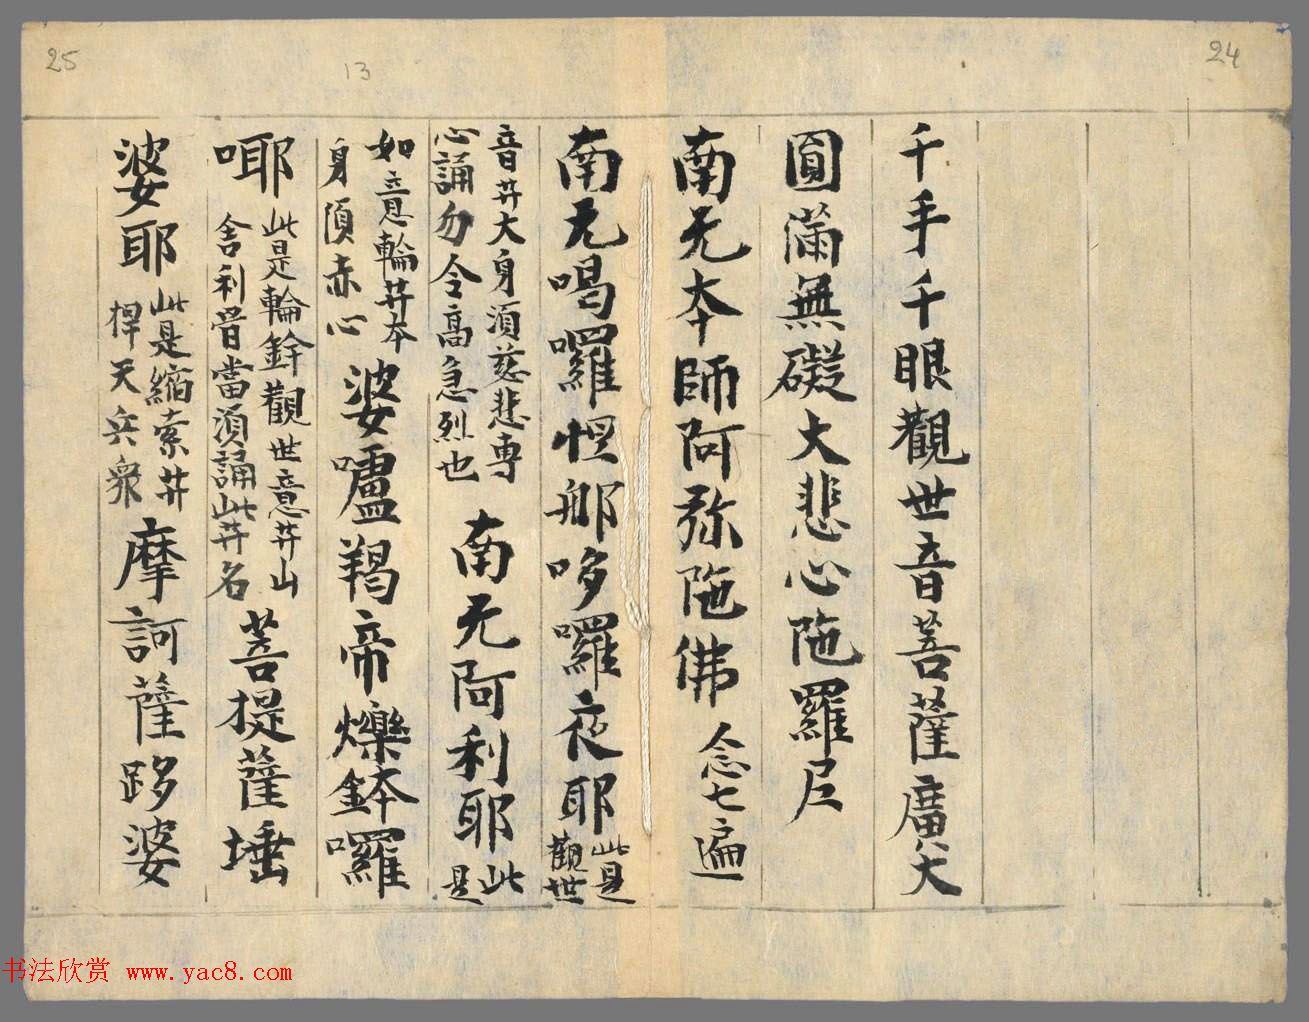 25
13
24
千手千眼觀世音菩薩廣大
圓滿無礙大悲心陁羅尼
南无本師阿弥陁佛 念七遍
南无喝囉怛那哆囉夜耶 此是觀世
音𦬇大身須慈悲專心誦勿令高急烈也 南无阿利耶 此是
如意輪𦬇本身湏赤心 婆嚧羯帝爍鉢囉
㖿 此是輪鋅觀世意𦬇山舍利骨當湏誦此𦬇名 菩提薩埵
婆耶 此是縮索𦬇桿天兵衆 摩訶薩跢婆
书法欣赏 www.yac8.com